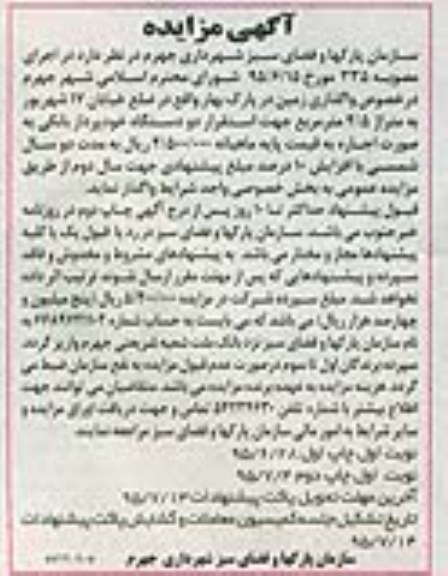 آگهی مزایده
سازمان پارکها و فضای سبز شهرداری جهرم در نظر دارد در اجرای
مصوبه ۳۳۵ مورخ ۹۵/۶/۱۵ شورای محترم اسلامی شهر جهرم
در خصوص واگذاری زمین در پارک بهار واقع در ضلع خیابان ۱۷ شهریور
به متراژ ۹/۵ مترمربع جهت استقرار دو دستگاه خودپرداز بانکی به
صورت اجاره به قیمت پایه ماهیانه ریال به مدت دو سال
شمسی با افزایش ۱۰ درصد مبلغ پیشنهادی جهت سال دوم از طریق
مزایده عمومی به بخش خصوصی واجد شرایط واگذار نماید.
قبول پیشنهاد حداکثر تا ۱۰ روز پس از درج آگهی چاپ دوم در روزنامه
خبرجنوب می باشد. سازمان پارکها و فضای سبز در رد یا قبول یک یا کلیه
پیشنهادها مجاز و مختار می باشد. به پیشنهادهای مشروط و مخدوش و فاقد
سپرده و پیشنهادهایی که پس از مهلت مقرر ارسال شوند ترتیب اثر داده
نخواهد شد. مبلغ سپرده شرکت در مزایده ۵/۴۰۰/۰۰۰ ریال (پنج میلیون و
چهارصد هزار ریال) می باشد که می بایست به حساب شماره به
نام سازمان پارکها و فضای سبز نزد بانک ملت شعبه شریعتی جهرم واریز گردد.
سپرده برندگان اول تا سوم در صورت عدم قبول مزایده به نفع سازمان ضبط می
گردد. هزینه مزایده به عهده برنده مزایده می باشد. متقاضیان می توانند جهت
اطلاع بیشتر با شماره تلفن ۵۴۲۳۹۶۳۰ تماس و جهت دریافت اوراق مزایده و
سایر شرایط به امور مالی سازمان پارکها و فضای سبز مراجعه نمایند.
نوبت اول چاپ اول ۹۵/۶/۲۸
نوبت اول چاپ دوم ۹۵/۷/۳
آخرین مهلت تحویل پاکت پیشنهادات ۹۵/۷/۱۳
تاریخ تشکیل جلسه کمیسیون معاملات و گشایش پاکت پیشنهادات
۹۵/۷/۱۴
سازمان پارکها و فضای سبز شهرداری جهرم